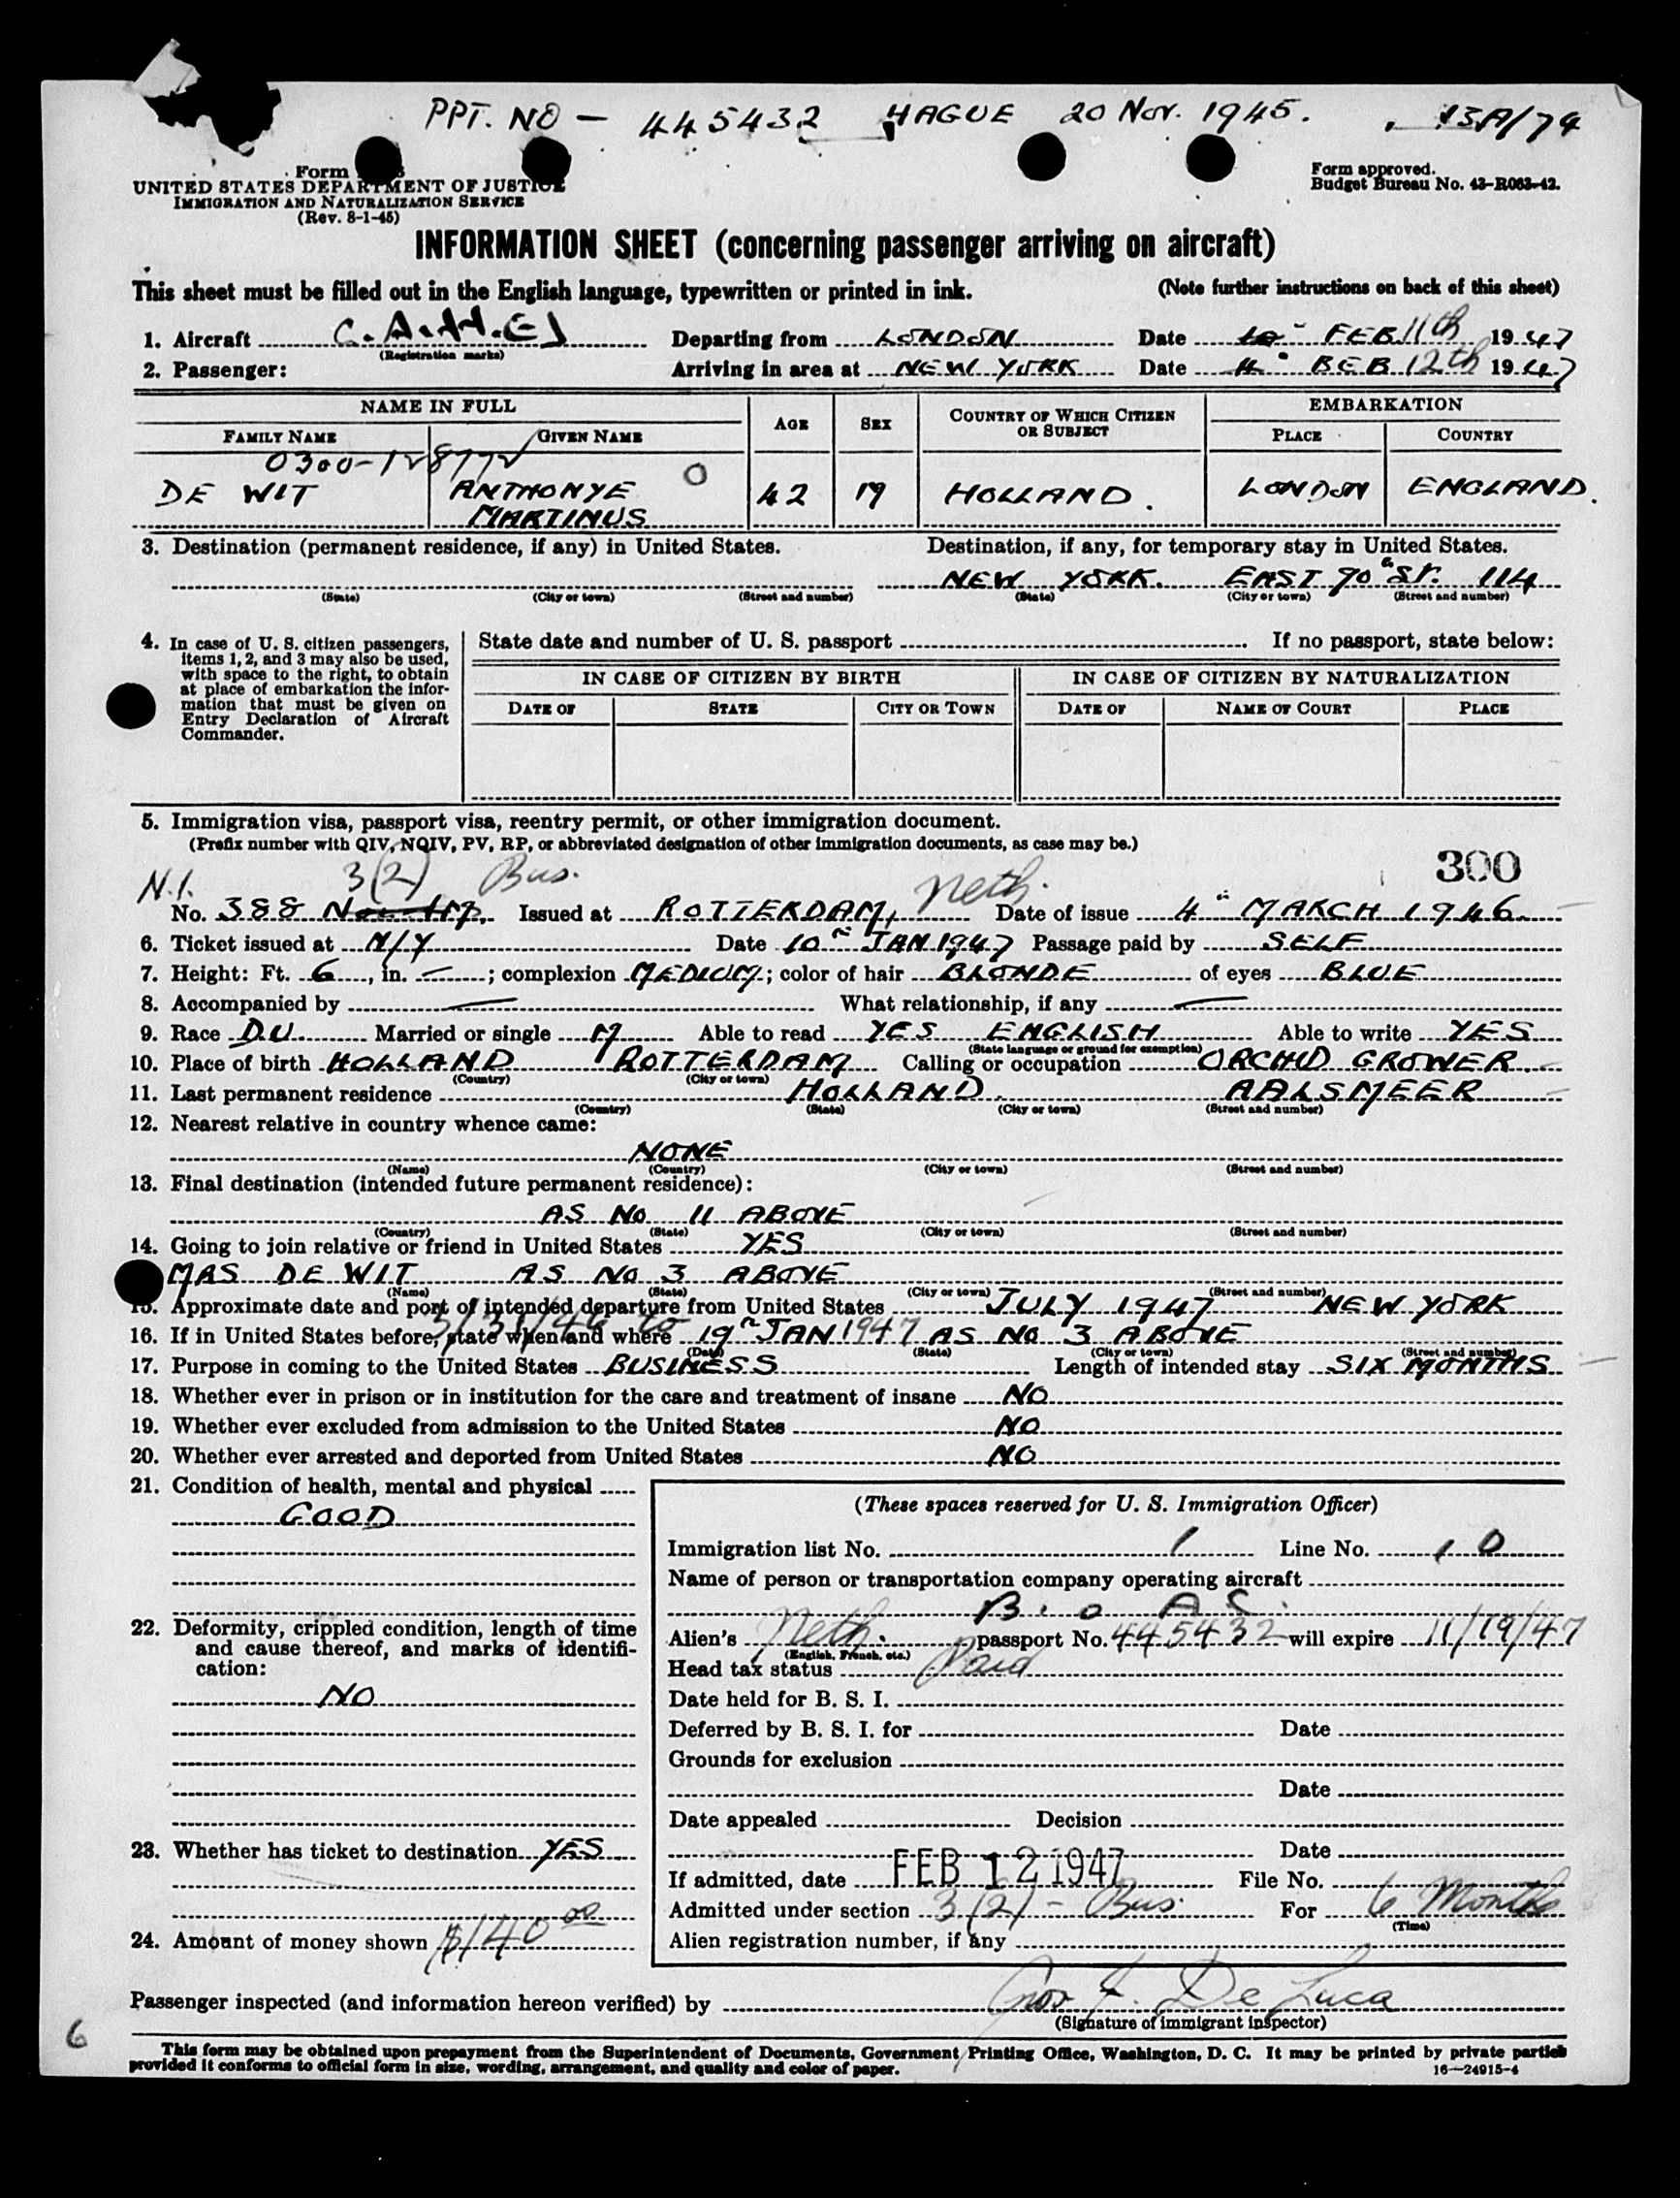 PPT. NO — 445432 HAGUE 20 Nov. 1945. 13A/74
Form
UNITED STATES DEPARTMENT OF JUSTICE
IMMIGRATION AND NATURALIZATION SERVICE
(Rev. 8-1-45)
Form approved.
Budget Bureau No. 43-R063-42.
INFORMATION SHEET (concerning passenger arriving on aircraft)
This sheet must be filled out in the English language, typewritten or printed in ink. (Note further instructions on back of this sheet)
1. Aircraft Departing from LONDON Date FEB 11th 1947
(Registration marks)
2. Passenger: Arriving in area at NEW YORK Date BEB 12th 1947
NAME IN FULL AGE SEX COUNTRY OF WHICH CITIZEN OR SUBJECT EMBARKATION
FAMILY NAME GIVEN NAME PLACE COUNTRY
0300-128772
DE WIT ANTHONYE 0 42 M HOLLAND. LONDON ENGLAND.
MARTINUS
3. Destination (permanent residence, if any) in United States. Destination, if any, for temporary stay in United States.
NEW YORK. EAST 90 St. 114
(State) (City or town) (Street and number) (State) (City or town) (Street and number)
4. In case of U. S. citizen passengers, items 1, 2, and 3 may also be used, with space to the right, to obtain at place of embarkation the information that must be given on Entry Declaration of Aircraft Commander.
State date and number of U. S. passport . If no passport, state below:
IN CASE OF CITIZEN BY BIRTH IN CASE OF CITIZEN BY NATURALIZATION
DATE OF STATE CITY OR TOWN DATE OF NAME OF COURT PLACE
5. Immigration visa, passport visa, reentry permit, or other immigration document.
(Prefix number with QIV, NQIV, PV, RP, or abbreviated designation of other immigration documents, as case may be.)
300
N.I. 3(2) Bus. Neth.
No. 388 Issued at ROTTERDAM, Date of issue 4 MARCH 1946
6. Ticket issued at N/Y Date 10 JAN 1947 Passage paid by SELF
7. Height: Ft. 6, in. —; complexion MEDIUM; color of hair BLONDE of eyes BLUE
8. Accompanied by — What relationship, if any —
9. Race DU. Married or single M Able to read YES ENGLISH Able to write YES
(State language or ground for exemption)
10. Place of birth HOLLAND ROTTERDAM Calling or occupation ORCHID GROWER
(Country) (City or town)
11. Last permanent residence HOLLAND. AALSMEER
(Country) (State) (City or town) (Street and number)
12. Nearest relative in country whence came:
NONE
(Name) (Country) (City or town) (Street and number)
13. Final destination (intended future permanent residence):
AS No 11 ABOVE
(Country) (State) (City or town) (Street and number)
14. Going to join relative or friend in United States YES
MRS DE WIT AS No 3 ABOVE
(Name) (State) (City or town) (Street and number)
15. Approximate date and port of intended departure from United States JULY 1947 NEW YORK
3/31/46 to
16. If in United States before, state when and where 19 JAN 1947 AS No 3 ABOVE
(Date) (State) (City or town) (Street and number)
17. Purpose in coming to the United States BUSINESS Length of intended stay SIX MONTHS
18. Whether ever in prison or in institution for the care and treatment of insane NO
19. Whether ever excluded from admission to the United States NO
20. Whether ever arrested and deported from United States NO
21. Condition of health, mental and physical
GOOD
22. Deformity, crippled condition, length of time and cause thereof, and marks of identification:
NO
23. Whether has ticket to destination YES
24. Amount of money shown $140 00
(These spaces reserved for U. S. Immigration Officer)
Immigration list No. 1 Line No. 10
Name of person or transportation company operating aircraft
B. O A C.
Alien's Neth. passport No. 445432 will expire 11/19/47
(English, French, etc.)
Head tax status Paid
Date held for B. S. I.
Deferred by B. S. I. for Date
Grounds for exclusion
Date
Date appealed Decision
Date
If admitted, date FEB 12 1947 File No.
Admitted under section 3(2) - Bus. For 6 Months
(Time)
Alien registration number, if any
Passenger inspected (and information hereon verified) by De Luca
(Signature of immigrant inspector)
6
This form may be obtained upon prepayment from the Superintendent of Documents, Government Printing Office, Washington, D. C. It may be printed by private parties
provided it conforms to official form in size, wording, arrangement, and quality and color of paper. 16—24915-4